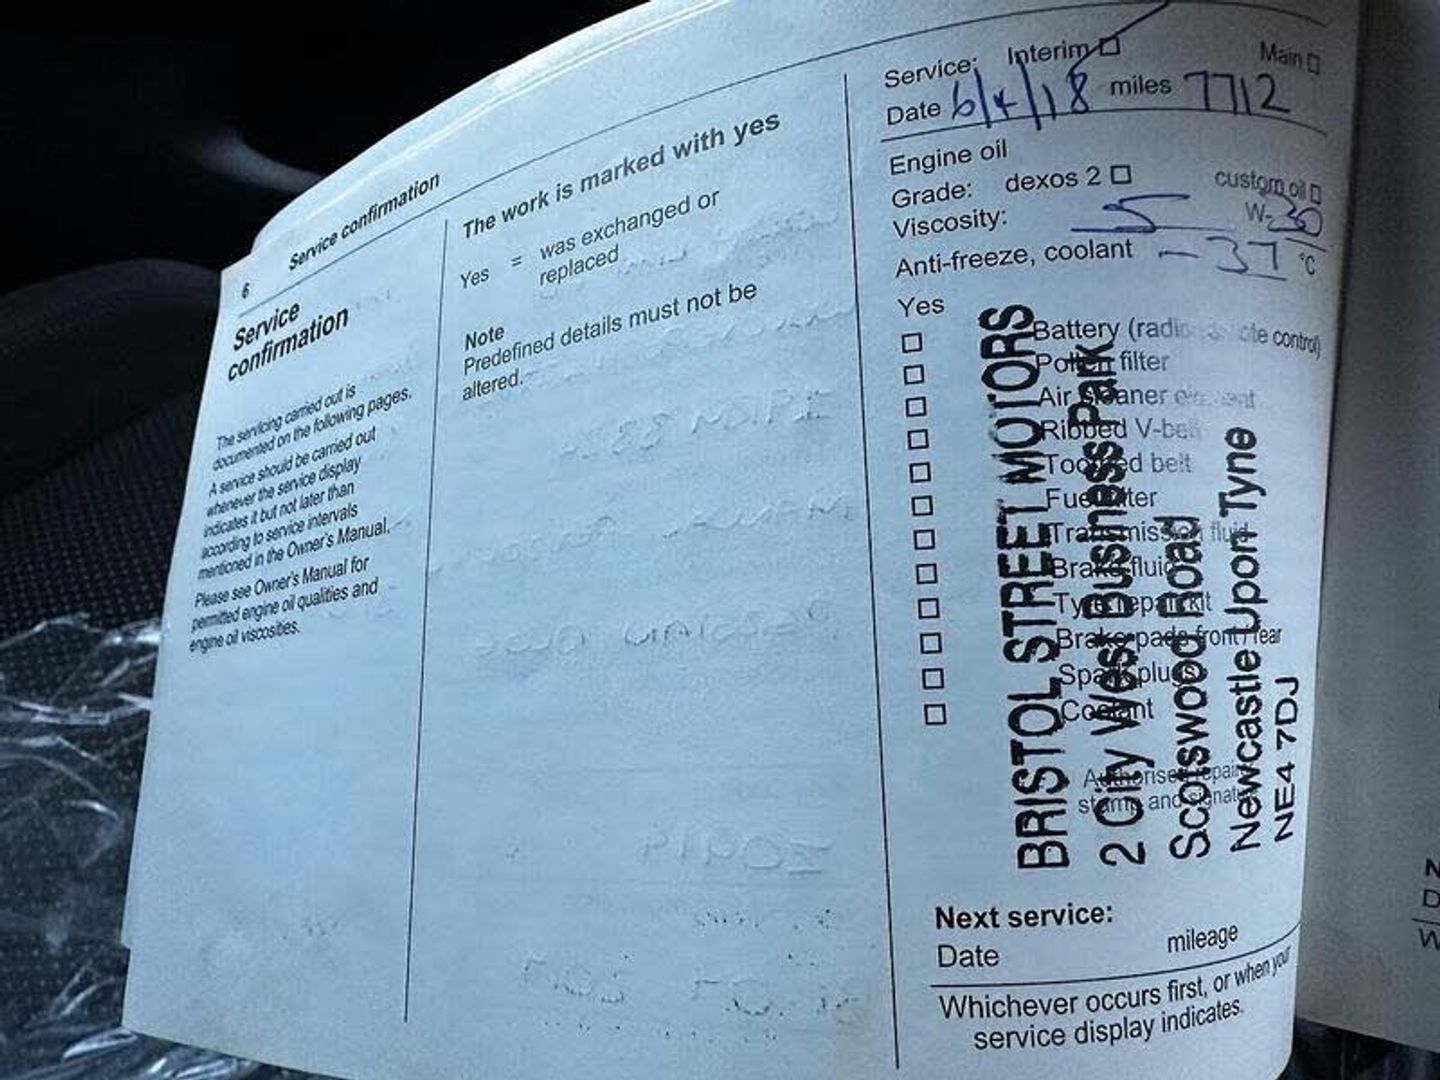 6
Service confirmation
Service
confirmation
The servicing carried out is
documented on the following pages.
A service should be carried out
whenever the service display
indicates it but not later than
according to service intervals
mentioned in the Owner's Manual.
Please see Owner's Manual for
permitted engine oil qualities and
engine oil viscosities.
The work is marked with yes
Yes = was exchanged or
replaced
Note
Predefined details must not be
altered.
Service: Interim Main
Date 6/4/18 miles 7712
Engine oil
Grade: dexos 2 custom oil
Viscosity: 5 W-30
Anti-freeze, coolant -37 °C
Yes
Battery (radio control)
Pollen filter
Air cleaner element
Ribbed V-belt
Toothed belt
Fuel filter
Transmission fluid
Brake fluid
Tyre repair kit
Brake pads front / rear
Spark plugs
Coolant
Authorised repair
stamp and signature
BRISTOL STREET MOTORS
2 City West Business Park
Scotswood Road
Newcastle Upon Tyne
NE4 7DJ
Next service:
Date mileage
Whichever occurs first, or when your
service display indicates.